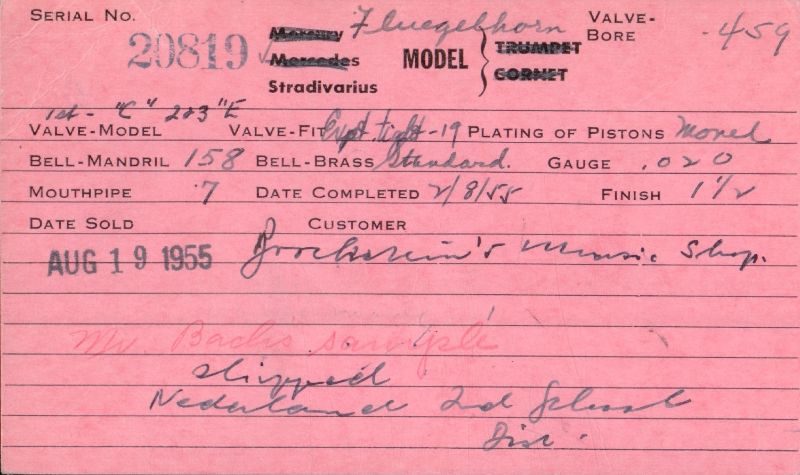 SERIAL NO. 20819 ✓ Mercury Fluegelhorn VALVE-BORE .459
Mercedes MODEL TRUMPET
Stradivarius CORNET
1st - "C" 2&3 "E"
VALVE-MODEL VALVE-FIT Expt. tight -19 PLATING OF PISTONS Monel
BELL-MANDRIL 158 BELL-BRASS Standard. GAUGE .020
MOUTHPIPE 7 DATE COMPLETED 2/8/55 FINISH 1 1/2
DATE SOLD CUSTOMER
AUG 19 1955 Brochstein's Music Shop.
Mr. Bachs sample
shipped
Nederland 2nd School
Dist.